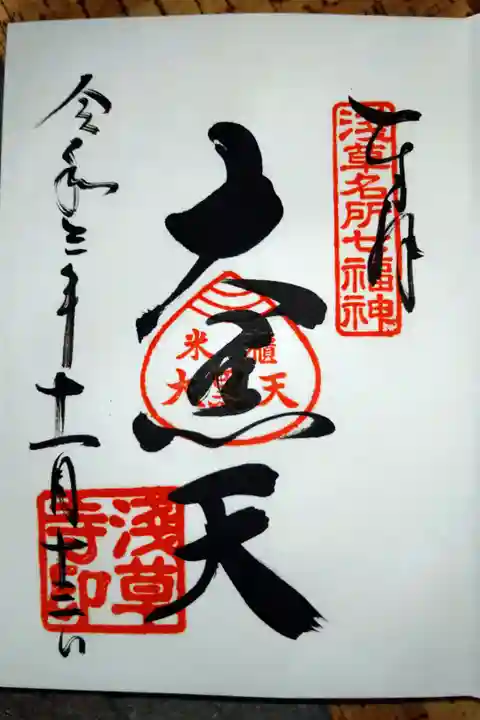 奉拝
浅草名所七福神
大黒天
米櫃
大黒天
浅草
寺印
令和三年十一月十三日